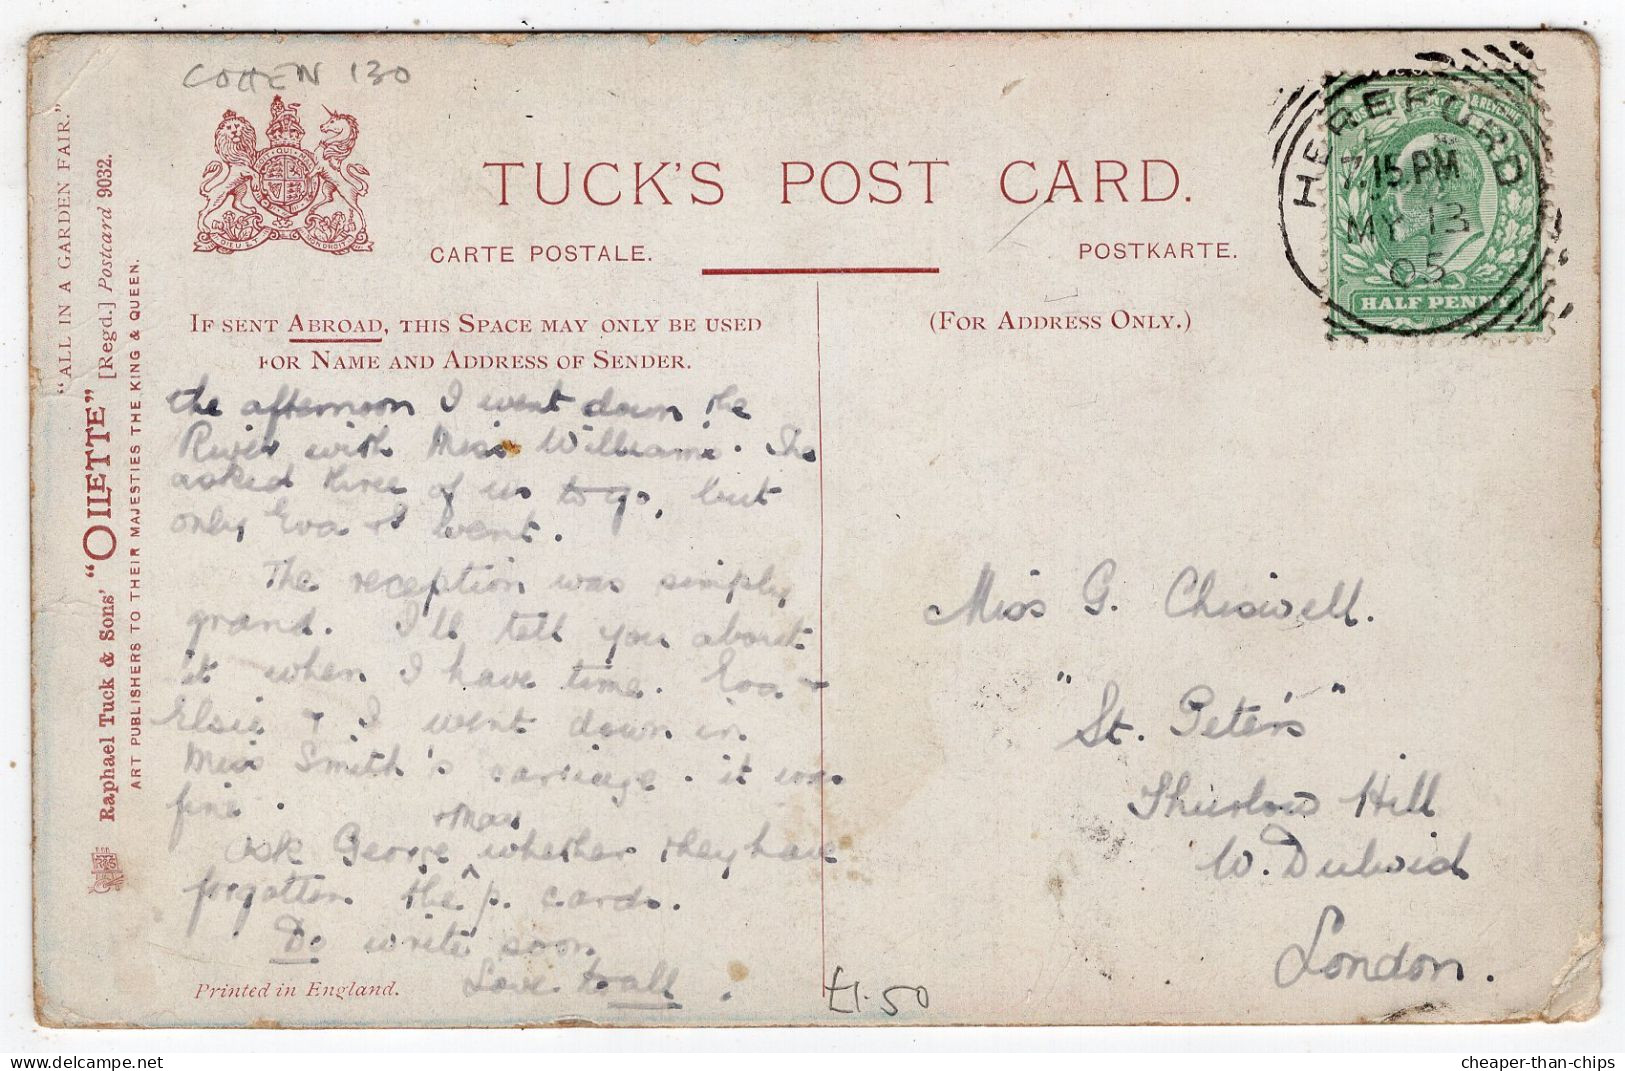 COHEN 130
TUCK'S POST CARD.
CARTE POSTALE.
POSTKARTE.
IF SENT ABROAD, THIS SPACE MAY ONLY BE USED
FOR NAME AND ADDRESS OF SENDER.
(FOR ADDRESS ONLY.)
HEREFORD
7.15 PM
MY 13
05
HALF PENNY
"ALL IN A GARDEN FAIR."
Raphael Tuck & Sons' "OILETTE" [Regd.] Postcard 9032.
ART PUBLISHERS TO THEIR MAJESTIES THE KING & QUEEN.
the afternoon I went down the
River with Miss Williams. She
asked three of us to go, but
only Eva & I went.
The reception was simply
grand. I'll tell you about
it when I have time. Eva
Elsie & I went down in
Miss Smith's carriage. it was
fine.
& Max
Ask George ^ whether they have
forgotten the p. cards.
Do write soon.
Love to all.
Miss G. Chiswell.
"St. Peter's"
Thurlow Hill
W. Dulwich
London.
Printed in England.
£1.50
cheaper-than-chips